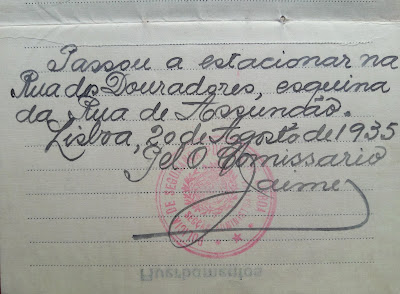 Passou a estacionar na
Rua dos Douradores, esquina
da Rua de Assunção.
Lisboa, 20 de Agosto de 1935
Pel O Comissario
Jaime
Averbamentos